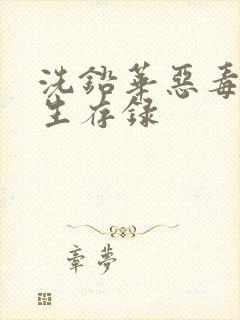 洗鉛華惡毒
生存録
章夢